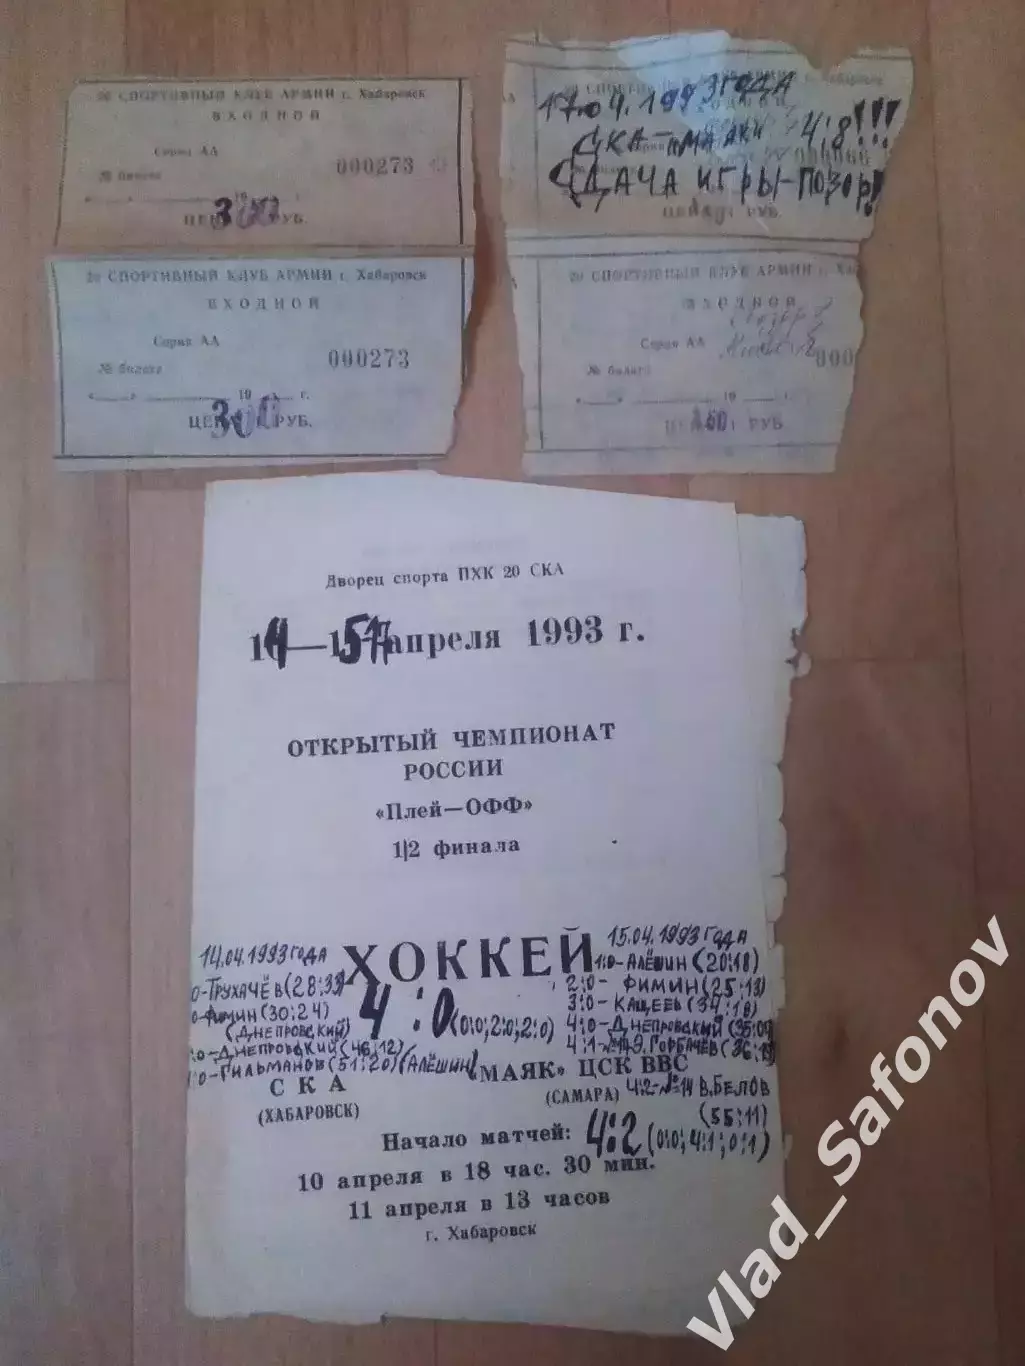 20 СПОРТИВНЫЙ КЛУБ АРМИИ г. Хабаровск
ВХОДНОЙ
Серия АА
№ билета 000273
19 г.
ЦЕНА 300 РУБ.
20 СПОРТИВНЫЙ КЛУБ АРМИИ г. Хабаровск
ВХОДНОЙ
Серия АА
№ билета 000273
19 г.
ЦЕНА 300 РУБ.
17.04.1993 ГОДА
СКА - "МАЯК" 4:8!!!
СДАЧА ИГРЫ - ПОЗОР!
РУБ.
20 СПОРТИВНЫЙ КЛУБ АРМИИ г. Хаб
ВХОДНОЙ
Серия АА
№ билета 000
19 г.
РУБ
Дворец спорта ПХК 20 СКА
14—15,17 апреля 1993 г.
ОТКРЫТЫЙ ЧЕМПИОНАТ
РОССИИ
«Плей—ОФФ»
1/2 финала
ХОККЕЙ
14.04.1993 ГОДА
0-ТРУХАЧЁВ (28:33)
0-ФИМИН (30:24)
(ДНЕПРОВСКИЙ)
:0-ДНЕПРОВСКИЙ (46:12)
:0-ГИЛЬМАНОВ (51:20) (АЛЁШИН)
4:0 (0:0; 2:0; 2:0)
15.04.1993 ГОДА
1:0-АЛЁШИН (20:18)
2:0- ФИМИН (25:13)
3:0- КАЩЕЕВ (34:18)
4:0-ДНЕПРОВСКИЙ (35:09
4:1-№19 Э.ГОРБАЧЁВ (36:19)
4:2-№14 В.БЕЛОВ
(55:11)
СКА
(ХАБАРОВСК)
"МАЯК" ЦСК ВВС
(САМАРА)
Начало матчей: 4:2 (0:0; 4:1; 0:1)
10 апреля в 18 час. 30 мин.
11 апреля в 13 часов
г. Хабаровск
Vlad_Safonov